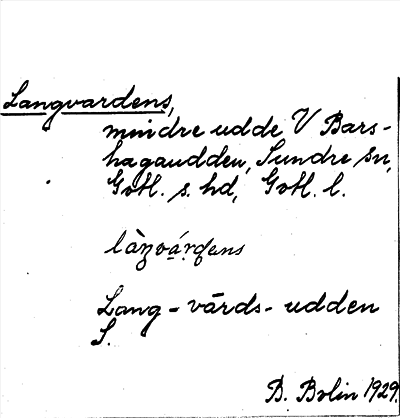 Langvardens,
mindre udde V Bars-
hagaudden, Sundre sn,
Gotl. s. hd, Gotl. l.
làŋvá̤rdens
Lang-vārds-udden
S.
B. Bolin 1929.